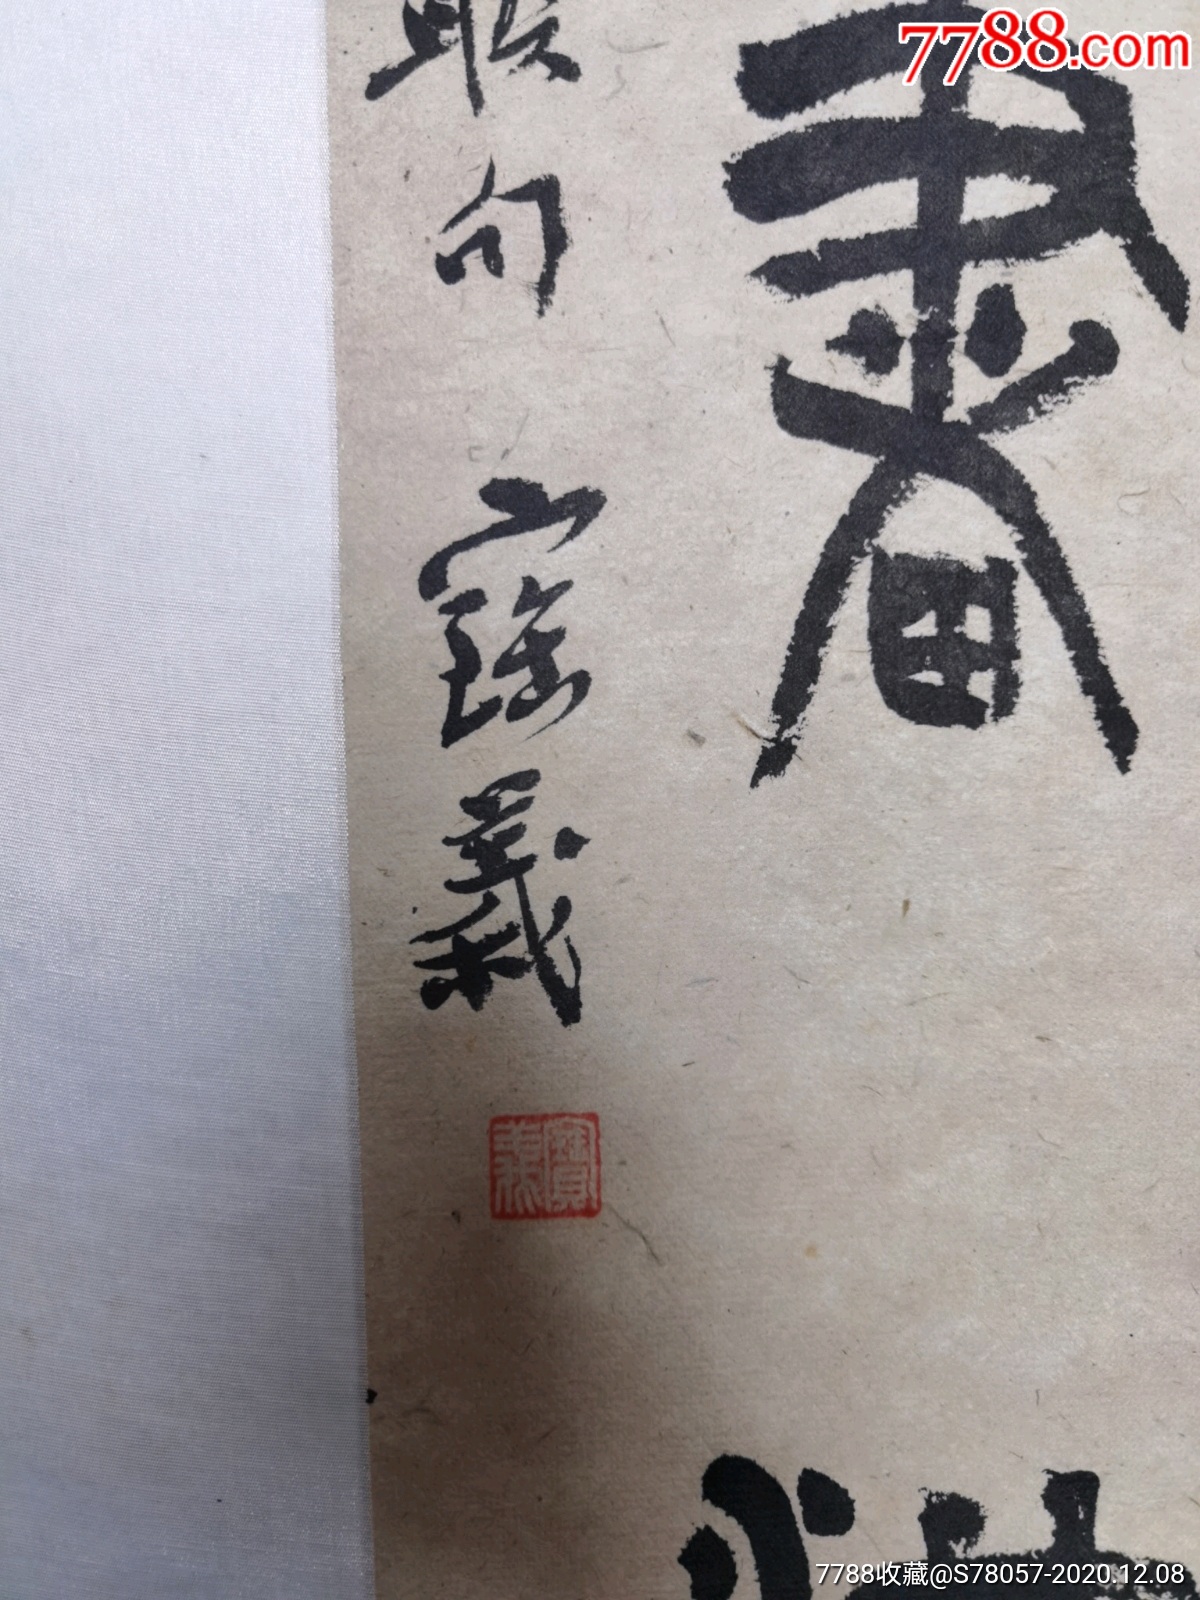 7788.com
書
联句
寳義
寳義
7788收藏@S78057-2020.12.08